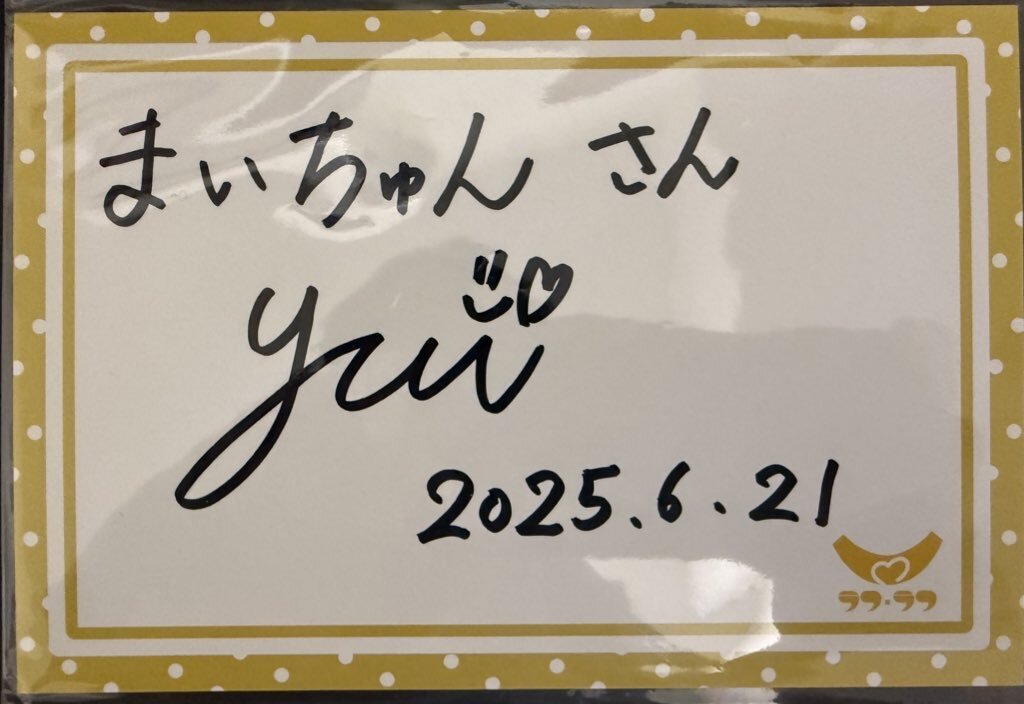 まいちゅん さん
yui
2025.6.21
ラフ×ラフ